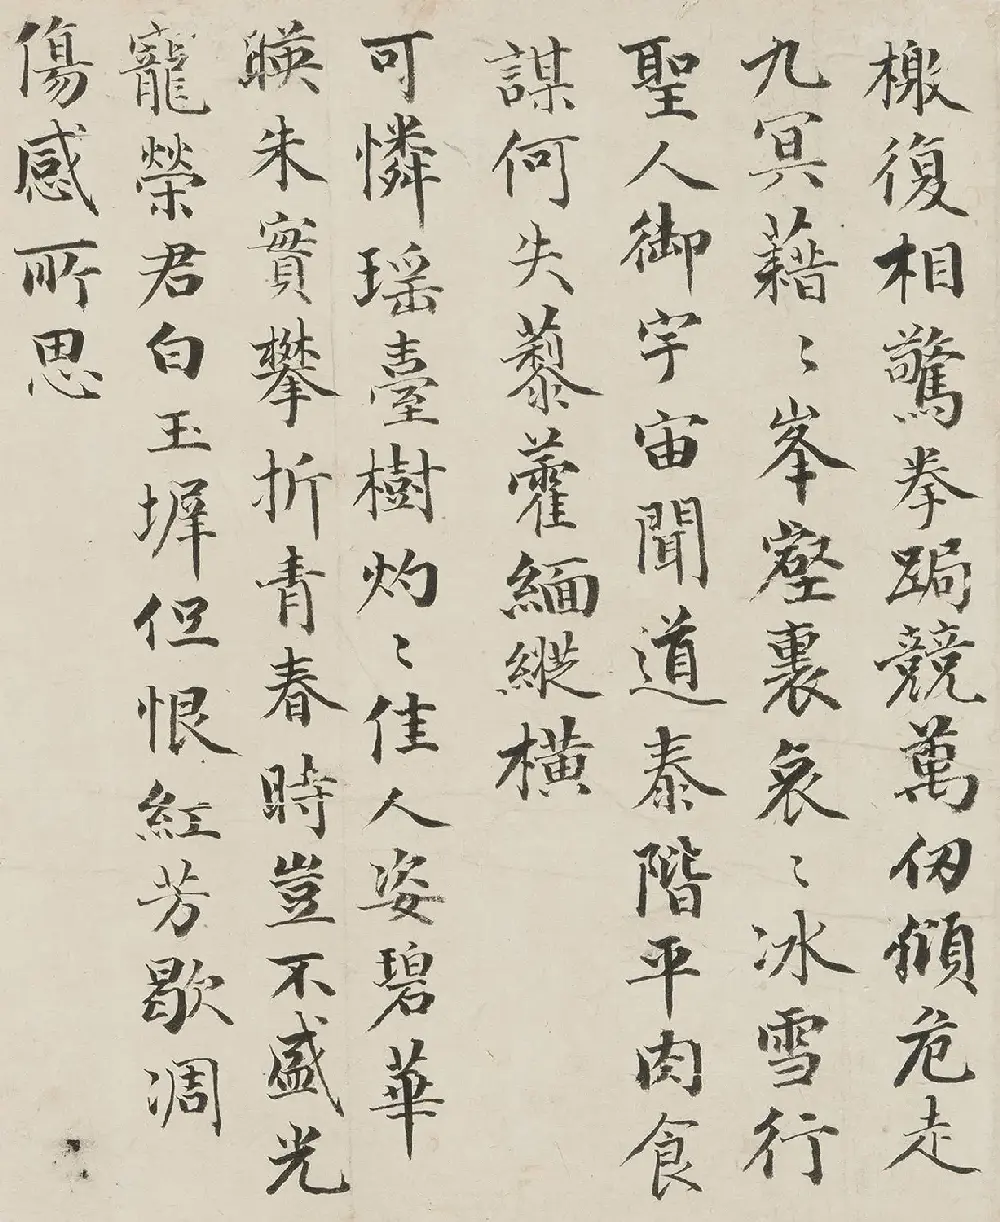 檄復相驚拳跼競萬仞傾危走
九冥藉〻峯壑裏哀〻冰雪行
聖人御宇宙聞道泰階平肉食
謀何失藜藿緬縱橫
可憐瑶臺樹灼〻佳人姿碧華
暎朱實攀折青春時豈不盛光
寵榮君白玉墀但恨紅芳歇凋
傷感所思